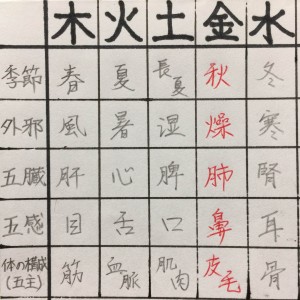 木 火 土 金 水
季節 春 夏 長夏 秋 冬
外邪 風 暑 湿 燥 寒
五臓 肝 心 脾 肺 腎
五感 目 舌 口 鼻 耳
体の構成(五主) 筋 血脈 肌肉 皮毛 骨